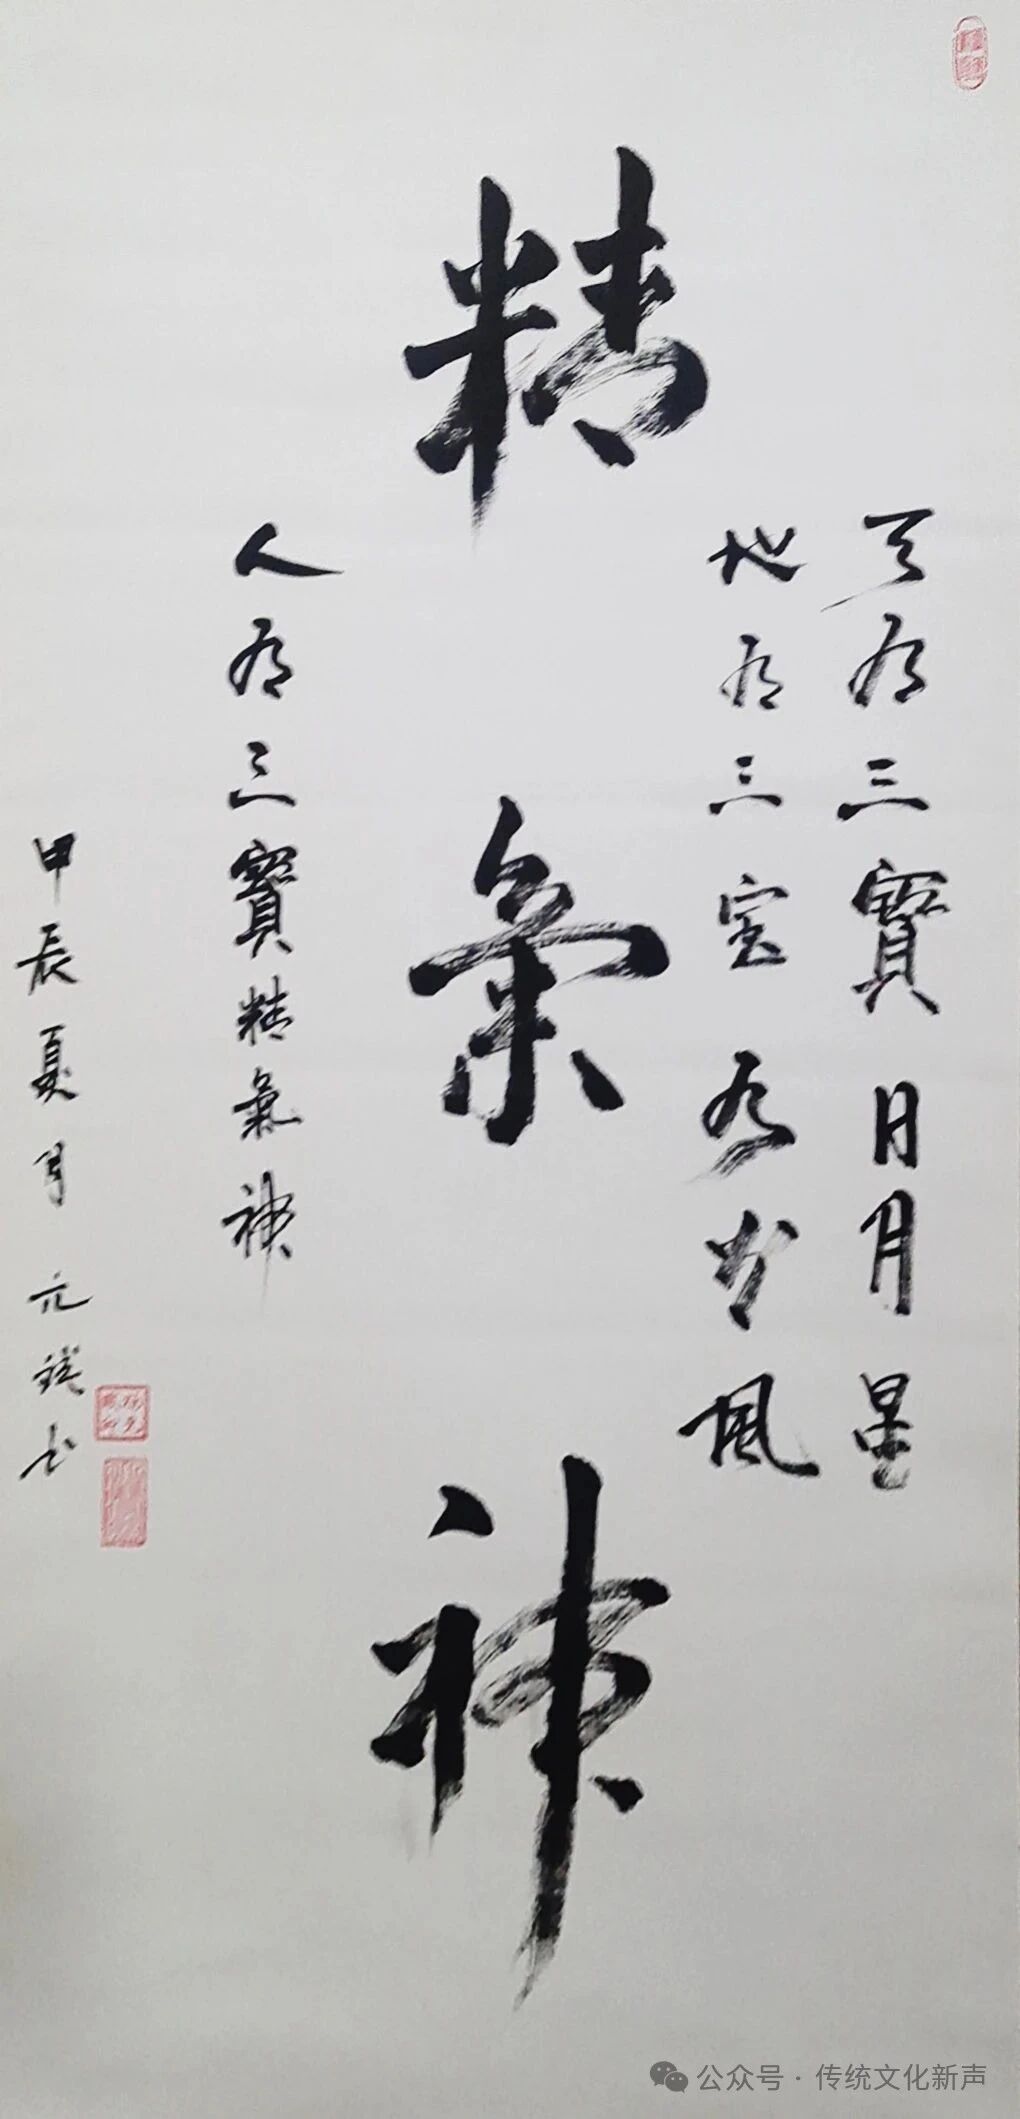 天有三寶日月星
地有三宝水火風
精氣神
人有三寶精氣神
甲辰夏月 元 书
公众号 · 传统文化新声